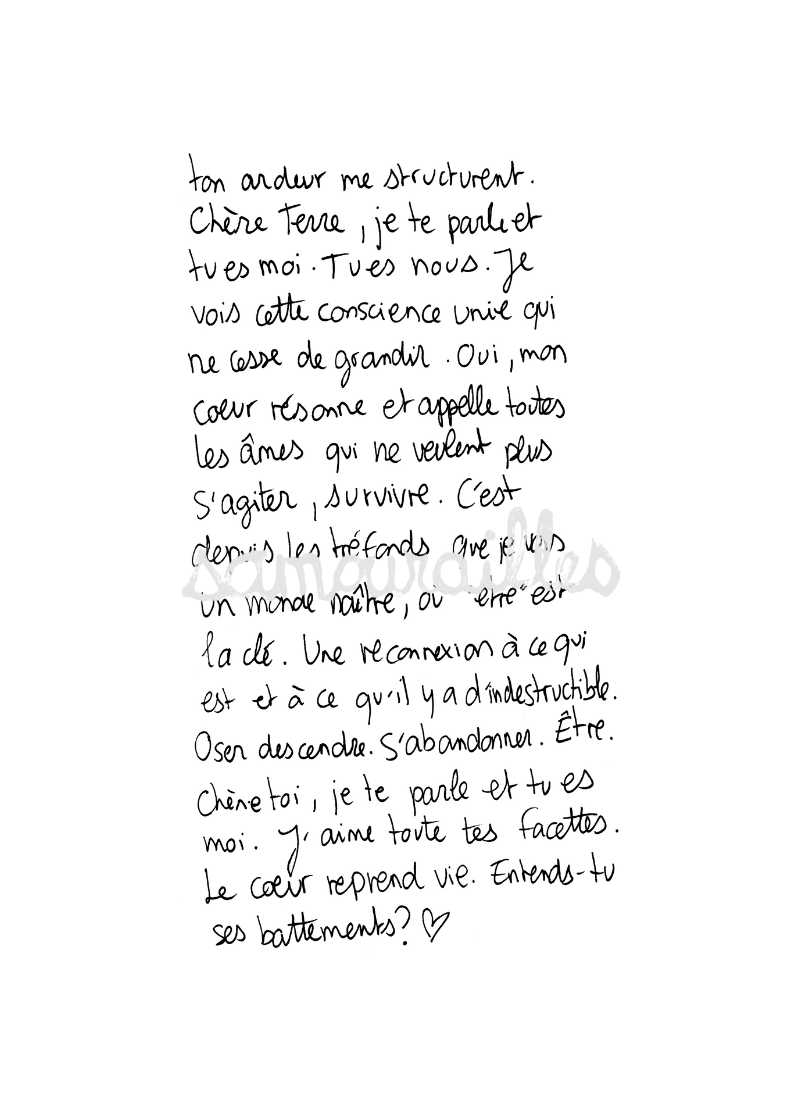 ton ardeur me structurent.
Chère Terre, je te parle et
tu es moi. Tu es nous. Je
vois cette conscience unie qui
ne cesse de grandir. Oui, mon
coeur résonne et appelle toutes
les âmes qui ne veulent plus
s'agiter, survivre. C'est
depuis les tréfonds que je vois
samouraailles
un monde naître, où "être" est
la clé. Une reconnexion à ce qui
est et à ce qu'il y a d'indestructible.
Oser descendre. S'abandonner. Être.
Chère toi, je te parle et tu es
moi. J'aime toute tes facettes.
Le coeur reprend vie. Entends-tu
ses battements? ♡